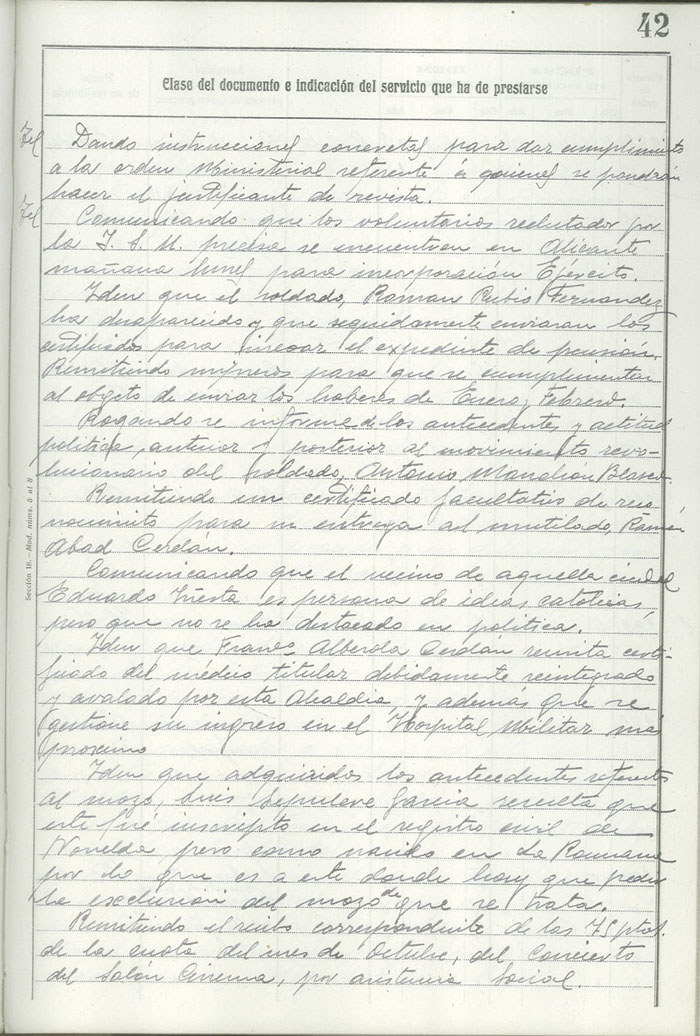 42
Clase del documento e indicación del servicio que ha de prestarse
Tel Dando instrucciones concretas para dar cumplimiento
a la orden Ministerial referente a quienes se pondrán
hacer el justificante de revista.
Tel Comunicando que los voluntarios reclutados por
la precisa se encuentren en Alicante
mañana lunes para incorporación Ejército.
Iden que el soldado, Ramon Rubio Fernandez
ha desaparecido y que seguidamente enviaran los
certificados para incoar el expediente de pensión.
Remitiendo impresos para que se cumplimenten
al objeto de enviar los haberes de Enero y Febrero.
Rogando se informe de los antecedentes y actitud
politica, anterior y posterior al movimiento revo-
lucionario del soldado, Antonio Blasco.
Remitiendo un certificado facultativo de reco-
nocimiento para su entrega al mutilado, Ramón
Abad Cerdán.
Comunicando que el vecino de aquella ciudad
Eduardo es persona de ideas catolicas,
pero que no se ha destacado en politica.
Iden que Franco Alberola Cerdán remita certi-
ficado del médico titular debidamente reintegrado
y avalado por esta Alcaldia, y además que se
gestione su ingreso en el Hospital Militar mas
proximo
Iden que adquiridos los antecedentes referentes
al mozo, Luis Sepulcre Garcia resulta que
este fué inscripto en el registro civil de
Novelda pero como nacido en La Romana
por lo que es a este donde hay que pedir
la exclusión del mozo de que se trata.
Remitiendo el recibo correspondiente de las 75 ptas.
de la cuota del mes de Octubre, del Concierto
del Salón Cinema, por asistencia Social.
Sección 18.—Mod. núms. 5 al 8